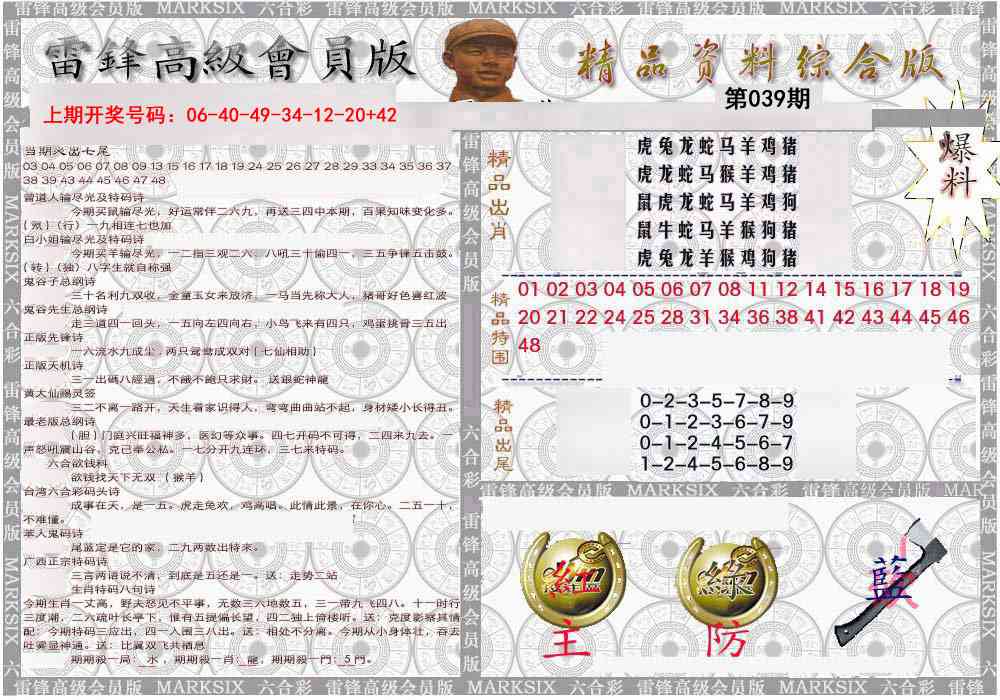 雷鋒高級會員版
精品资料综合版
第039期
上期开奖号码：06-40-49-34-12-20+42
爆料
当期奖出七尾
03 04 05 06 07 08 09 13 15 16 17 18 19 24 25 26 27 28 29 33 34 35 36 37
38 39 43 44 45 46 47 48
曾道人输尽光及特码诗
今期买鼠输尽光，好运常伴二六九，再送三四中本期，百果知味变化多。
(行)一九相连七也加
白小姐输尽光及特码诗
今期买羊输尽光，一二指三观二六，八吼三十偷四一，三五争锋五击鼓。
(转)(独)八字生就自称强
鬼谷子总纲诗
三十名利九双收，金童玉女来放济，一马当先称大人，猪哥好色喜红波
鬼谷先生总纲诗
走三道四一回头，一五向左四向右，小鸟飞来有四只，鸡蛋挑骨三五出
正版先锋诗
一六浇水九成尘，两只鸳鸯成双对(七仙相助)
正版天机诗
三一出碼八經過，不餓不飽只求財。送銀蛇神龍
黄大仙赐灵签
三二不离一路开，天生看家识得人，弯弯曲曲站不起，身材矮小长得丑。
最老版总纲诗
(胆)门庭兴旺福神多，医幻等众事。四七开码不可得，二四来九去。一
声怒吼震山谷，克己奉公私。一七分开九连环，三七来特码。
六合欲钱料
欲钱找天下无双(猴羊)
台湾六合彩码头诗
成事在天，是一五。虎走兔欢，鸡高唱。此情此景，在你心。二五一十，
不难懂。
本人鬼码诗
尾蓝定是它的家，二九两数出特来。
广西正宗特码诗
三言两语说不清，到底是五还是一。送：走势二站
生肖特码八句诗
今期生肖一丈高，野夫怒见不平事，无数三六地数五，三一带九飞四八。十一时行
三度潮，二六疏叶长亭下，惟有五提偏长望，四二独上倚楼听。送：克度影察其情
配：今期特码三应出，四一入围三八出。送：相处不分离。今期从小身体壮，吞去
吐雾显神通。送：比翼双飞共栖息
期期殺一局：水，期期殺一肖：龍，期期殺一門：5門。
精品出肖
虎兔龙蛇马羊鸡猪
虎龙蛇马猴羊鸡猪
鼠虎龙蛇马羊鸡狗
鼠牛蛇马羊猴狗猪
虎兔龙羊猴鸡狗猪
精品特围
01 02 03 04 05 06 07 08 11 12 14 15 16 17 18 19
20 21 22 24 25 28 31 34 36 38 41 42 43 44 45 46
48
精品出尾
0-2-3-5-7-8-9
0-1-2-3-6-7-9
0-1-2-4-5-6-7
1-2-4-5-6-8-9
紅
主
綠
防
藍